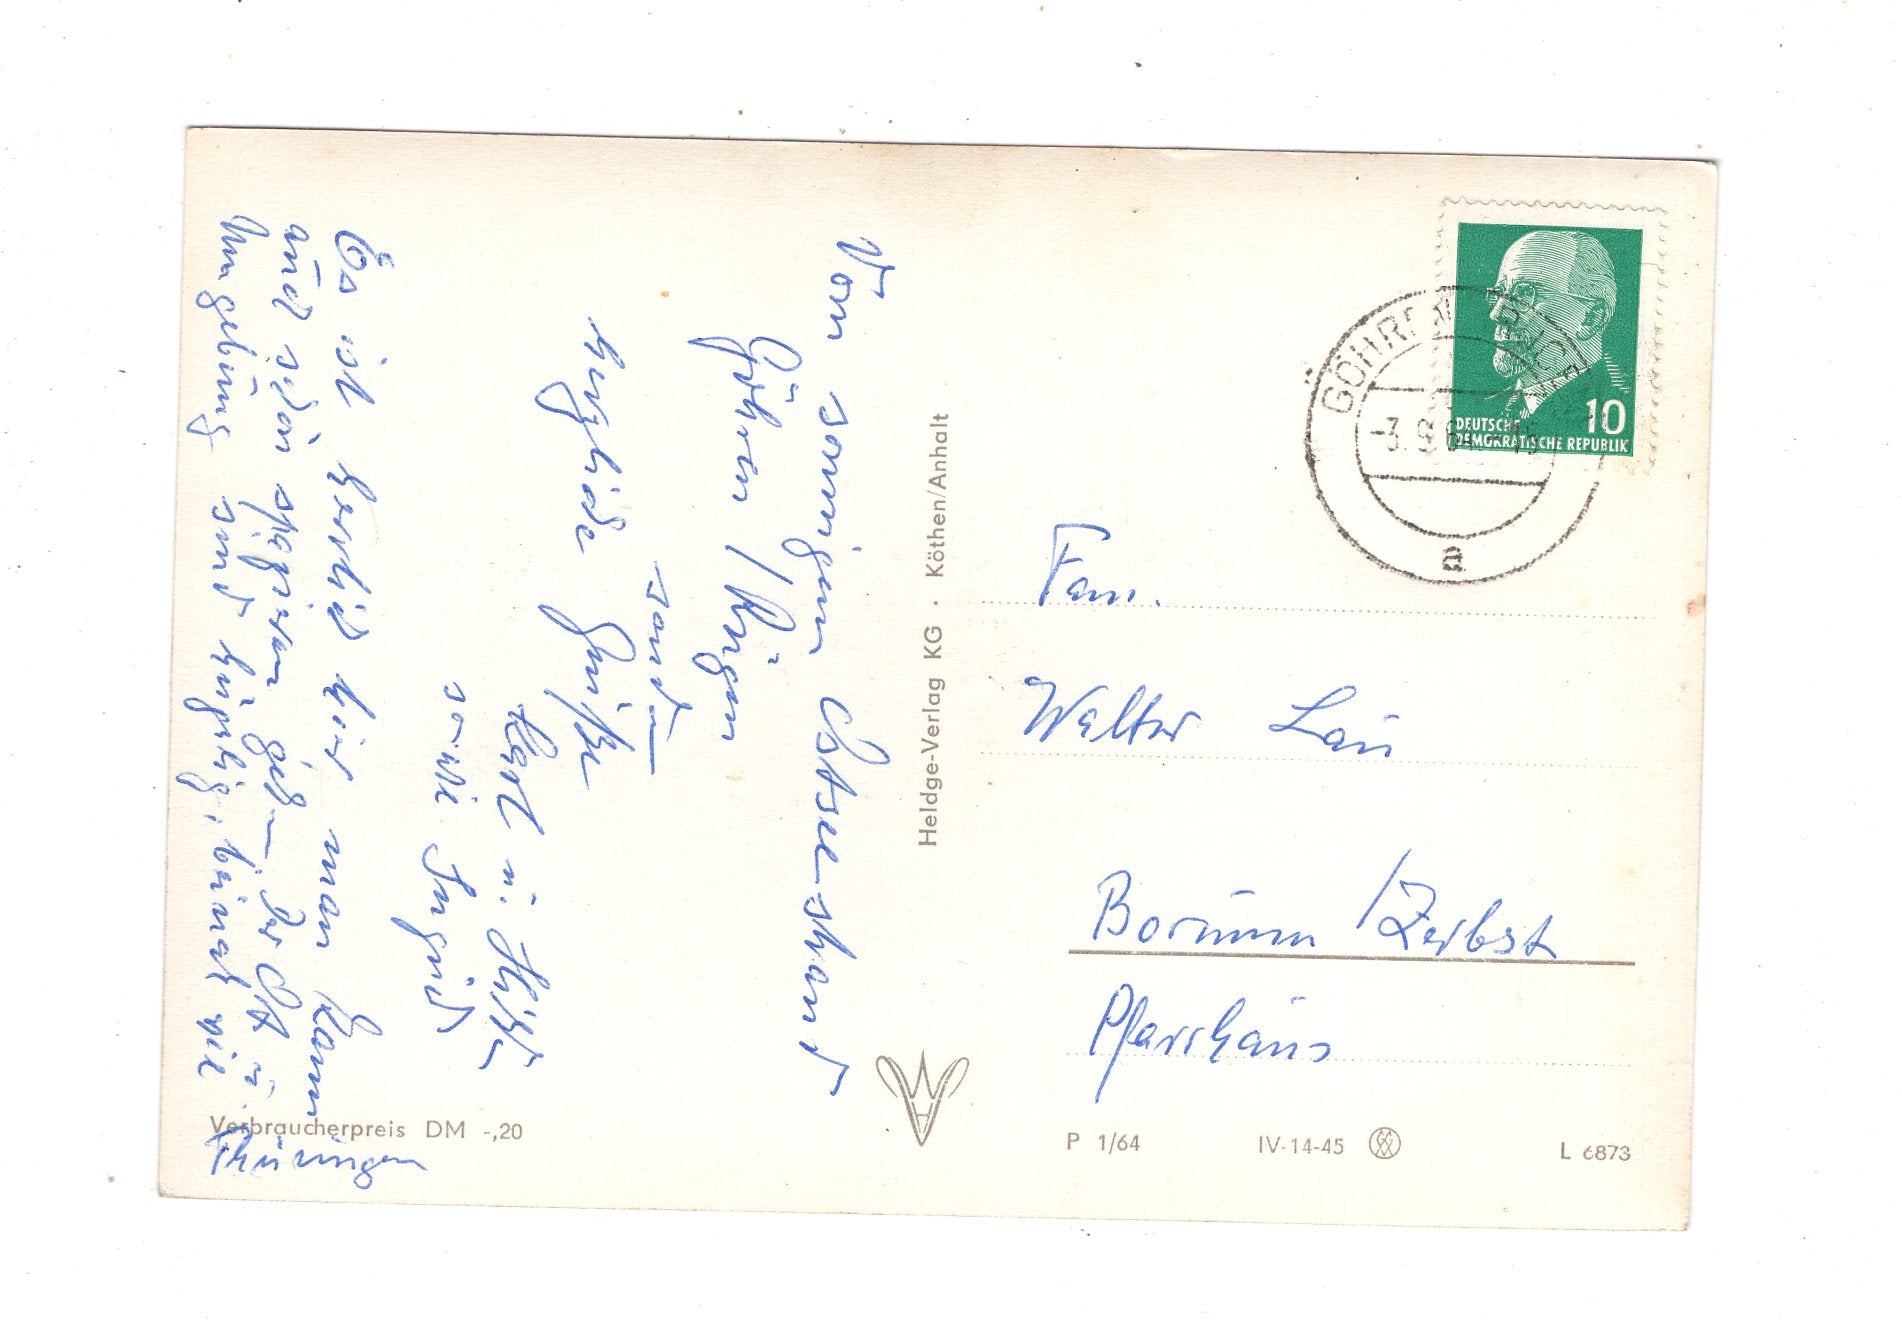 Vom sonnigen Ostseestrand
Göhren / Rügen
senden
herzliche Grüße
Karl u.
sowie Ingrid
Es ist herrlich hier man kann
auch schön spazieren gehen. Der Ort u.
Umgebung sind hügelig, beinah wie
Thüringen
Verbraucherpreis DM -,20
Heldge-Verlag KG · Köthen/Anhalt
10
DEUTSCHE
DEMOKRATISCHE REPUBLIK
GÖHREN
-3. 9. 64 -15
a
Fam.
Walter Lau
Bornum /Zerbst
Pfarrhaus
P 1/64
IV-14-45
L 6873